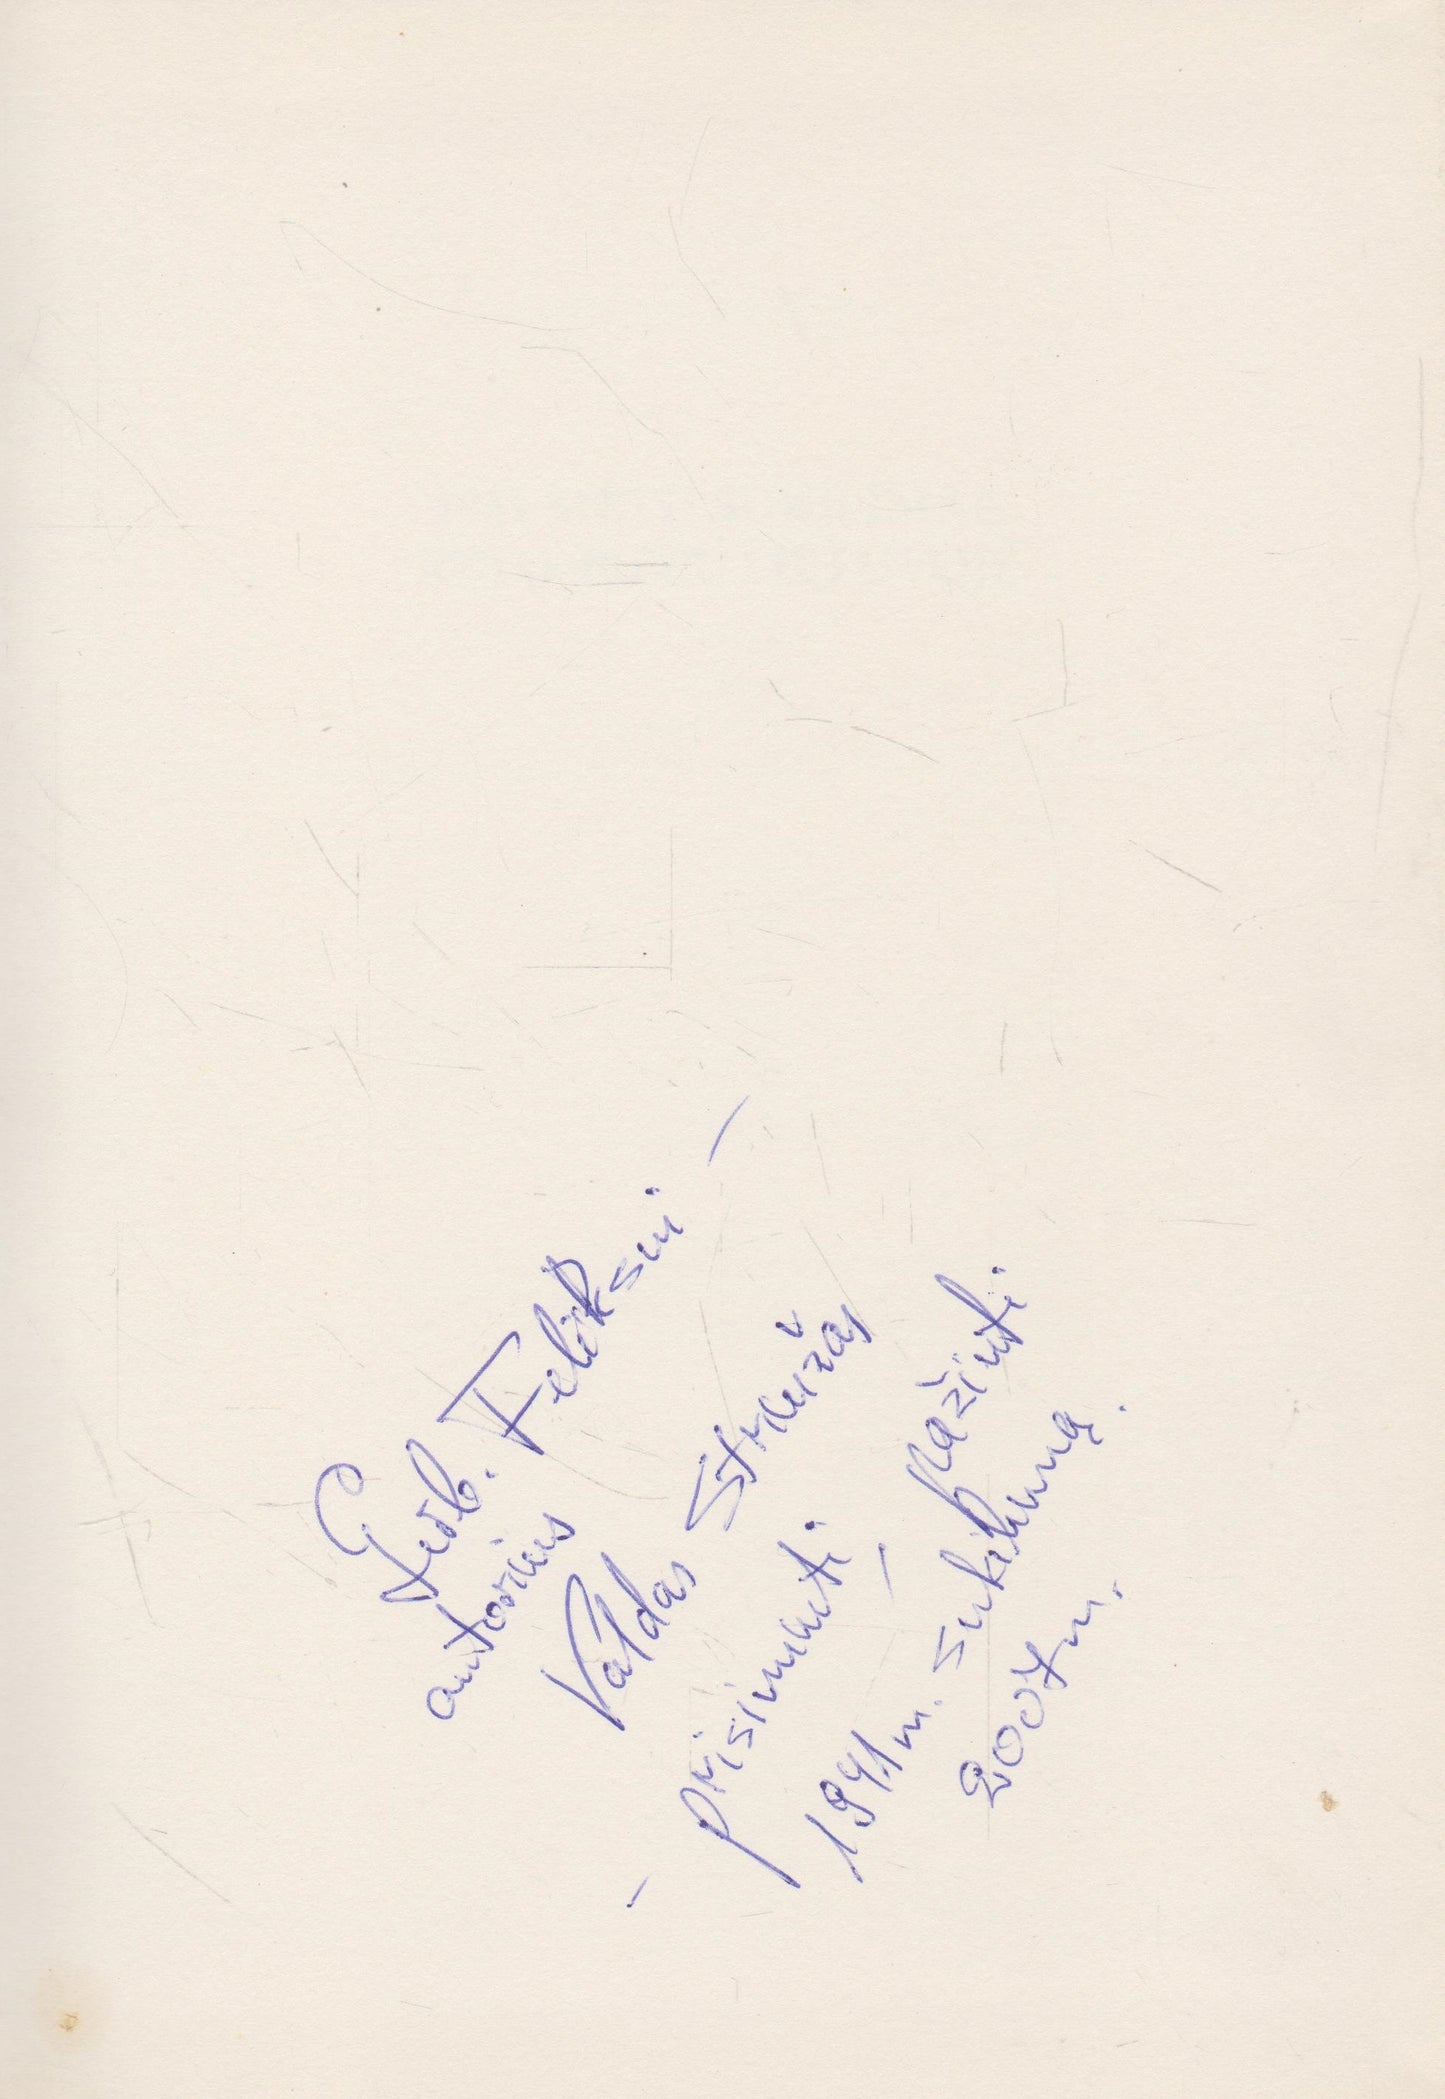 Gerb. Feliksui –
autorius
Valdas Striužas
– prisiminti – pažinti
1941 m. sukilimą.
2007 m.